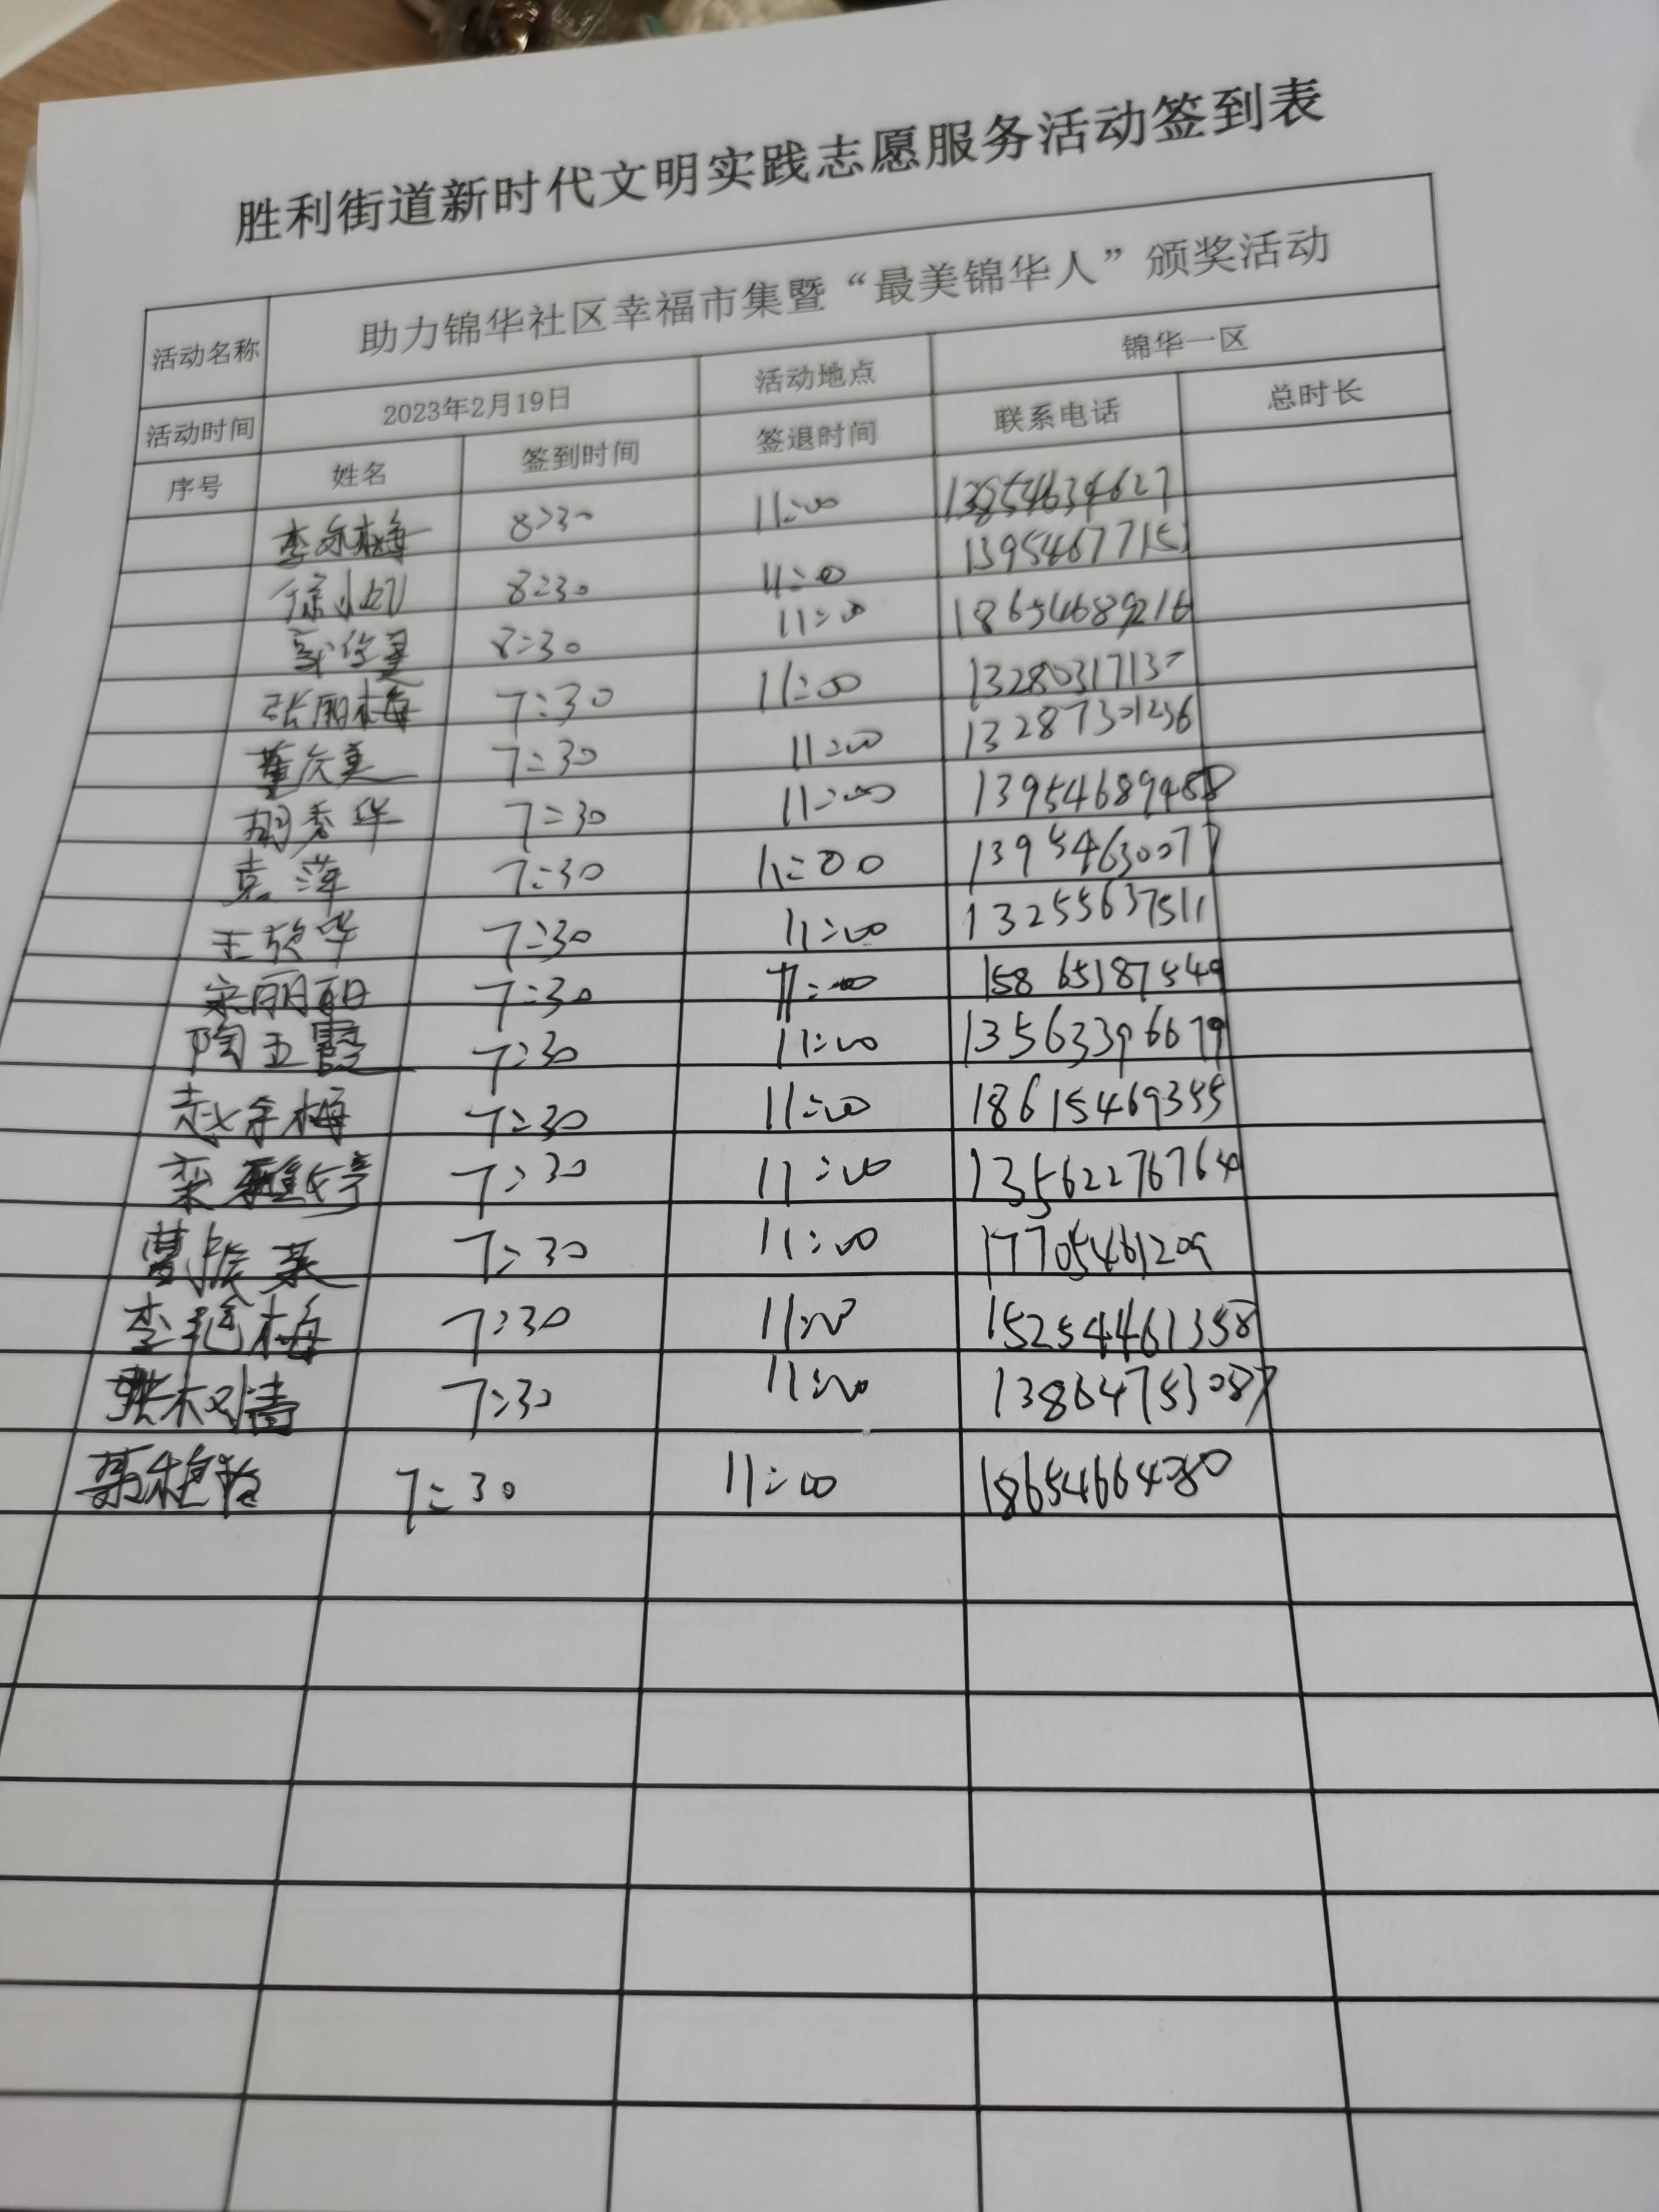 胜利街道新时代文明实践志愿服务活动签到表
活动名称 助力锦华社区幸福市集暨“最美锦华人”颁奖活动
活动时间 2023年2月19日 活动地点 锦华一区
序号 姓名 签到时间 签退时间 联系电话 总时长
李 梅 8:30 11:00 13854634627
徐小 8:30 11:00 1395467715
8:30 11:00 18654689216
张丽梅 7:30 11:00 13280317130
董庆美 7:30 11:00 13287301236
胡秀华 7:30 11:00 13954689488
袁萍 7:30 11:00 13954630077
王 华 7:30 11:00 13255637511
宋丽 7:30 11:00 15865187549
陶玉霞 7:30 11:00 13563396679
赵 梅 7:30 11:00 18615469355
栾雅婷 7:30 11:00 13562276764
7:30 11:00 17705461209
李艳梅 7:30 11:00 15254461358
张树涛 7:30 11:00 13864753087
7:30 11:00 18654664080